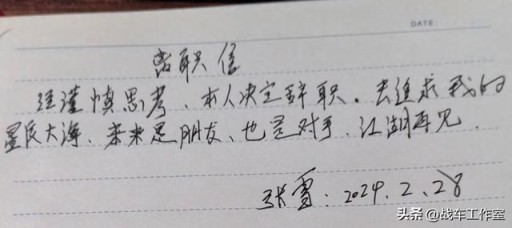 DATE:
离职信
经谨慎思考、本人决定辞职。去追求我的
星辰大海、未来是朋友、也是对手、江湖再见.
张雪: 2024.2.28
头条 @战车工作室